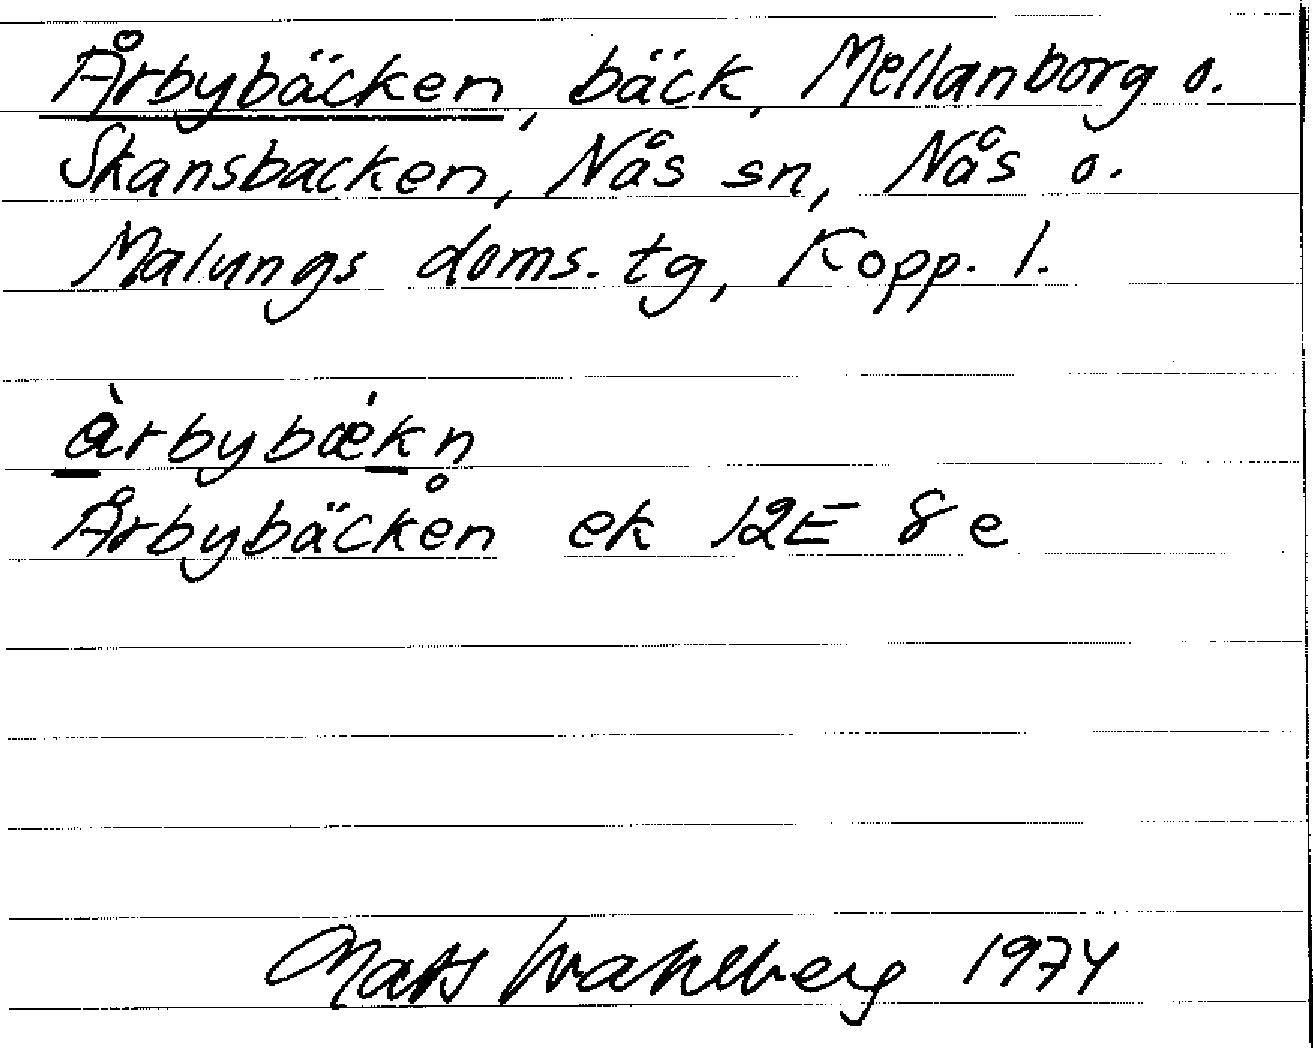 Årbybäcken, bäck, Mellanborg o.
Skansbacken, Nås sn, Nås o.
Malungs doms. tg, Kopp. l.
àrbybǽkn̥
Årbybäcken ek 12E 8e
Mats Wahlberg 1974